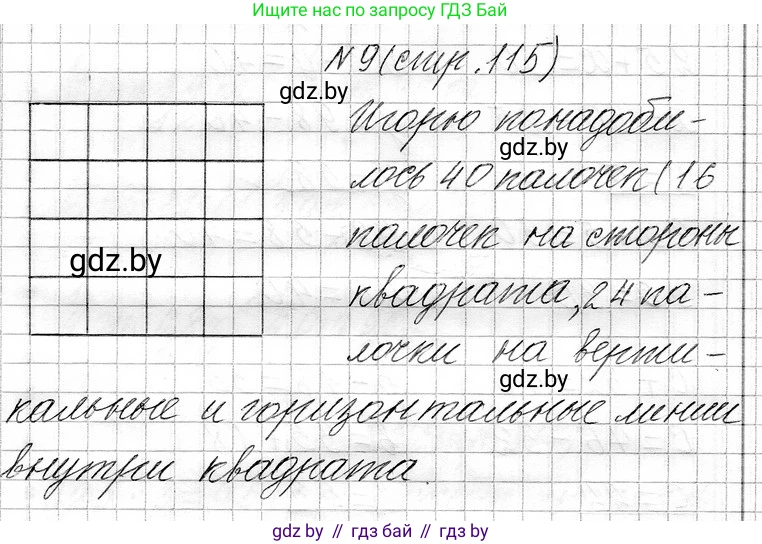 Ищите нас по запросу ГДЗ Бай
N 9 (стр. 115)
gdz.by
Игорю понадоби-
gdz.by
лось 40 палочек (16
палочек на стороны
gdz.by
квадрата, 24 па-
лочки на верти-
gdz.by
кальные и горизонтальные линии
внутри квадрата.
gdz.by // гдз бай // гдз by